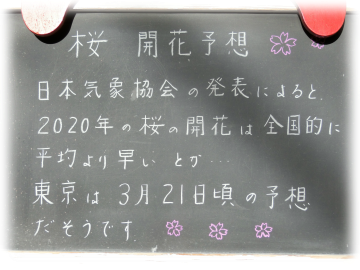 桜 開花予想
日本気象協会の発表によると
2020年の桜の開花は全国的に
平均より早いとか…
東京は3月21日頃の予想
だそうです